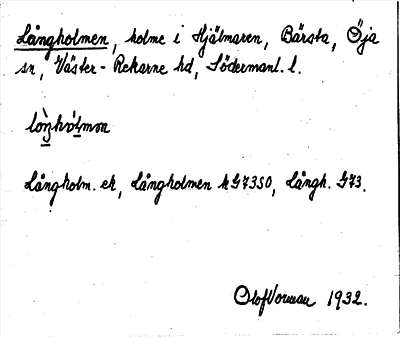 Långholmen, holme i Hjälmaren, Bärsta, Öja
sn, Väster-Rekarne hd, Södermanl. l.
Långholm. ek, Långholmen k G7350, Långh. G73.
Olof Vorman 1932.